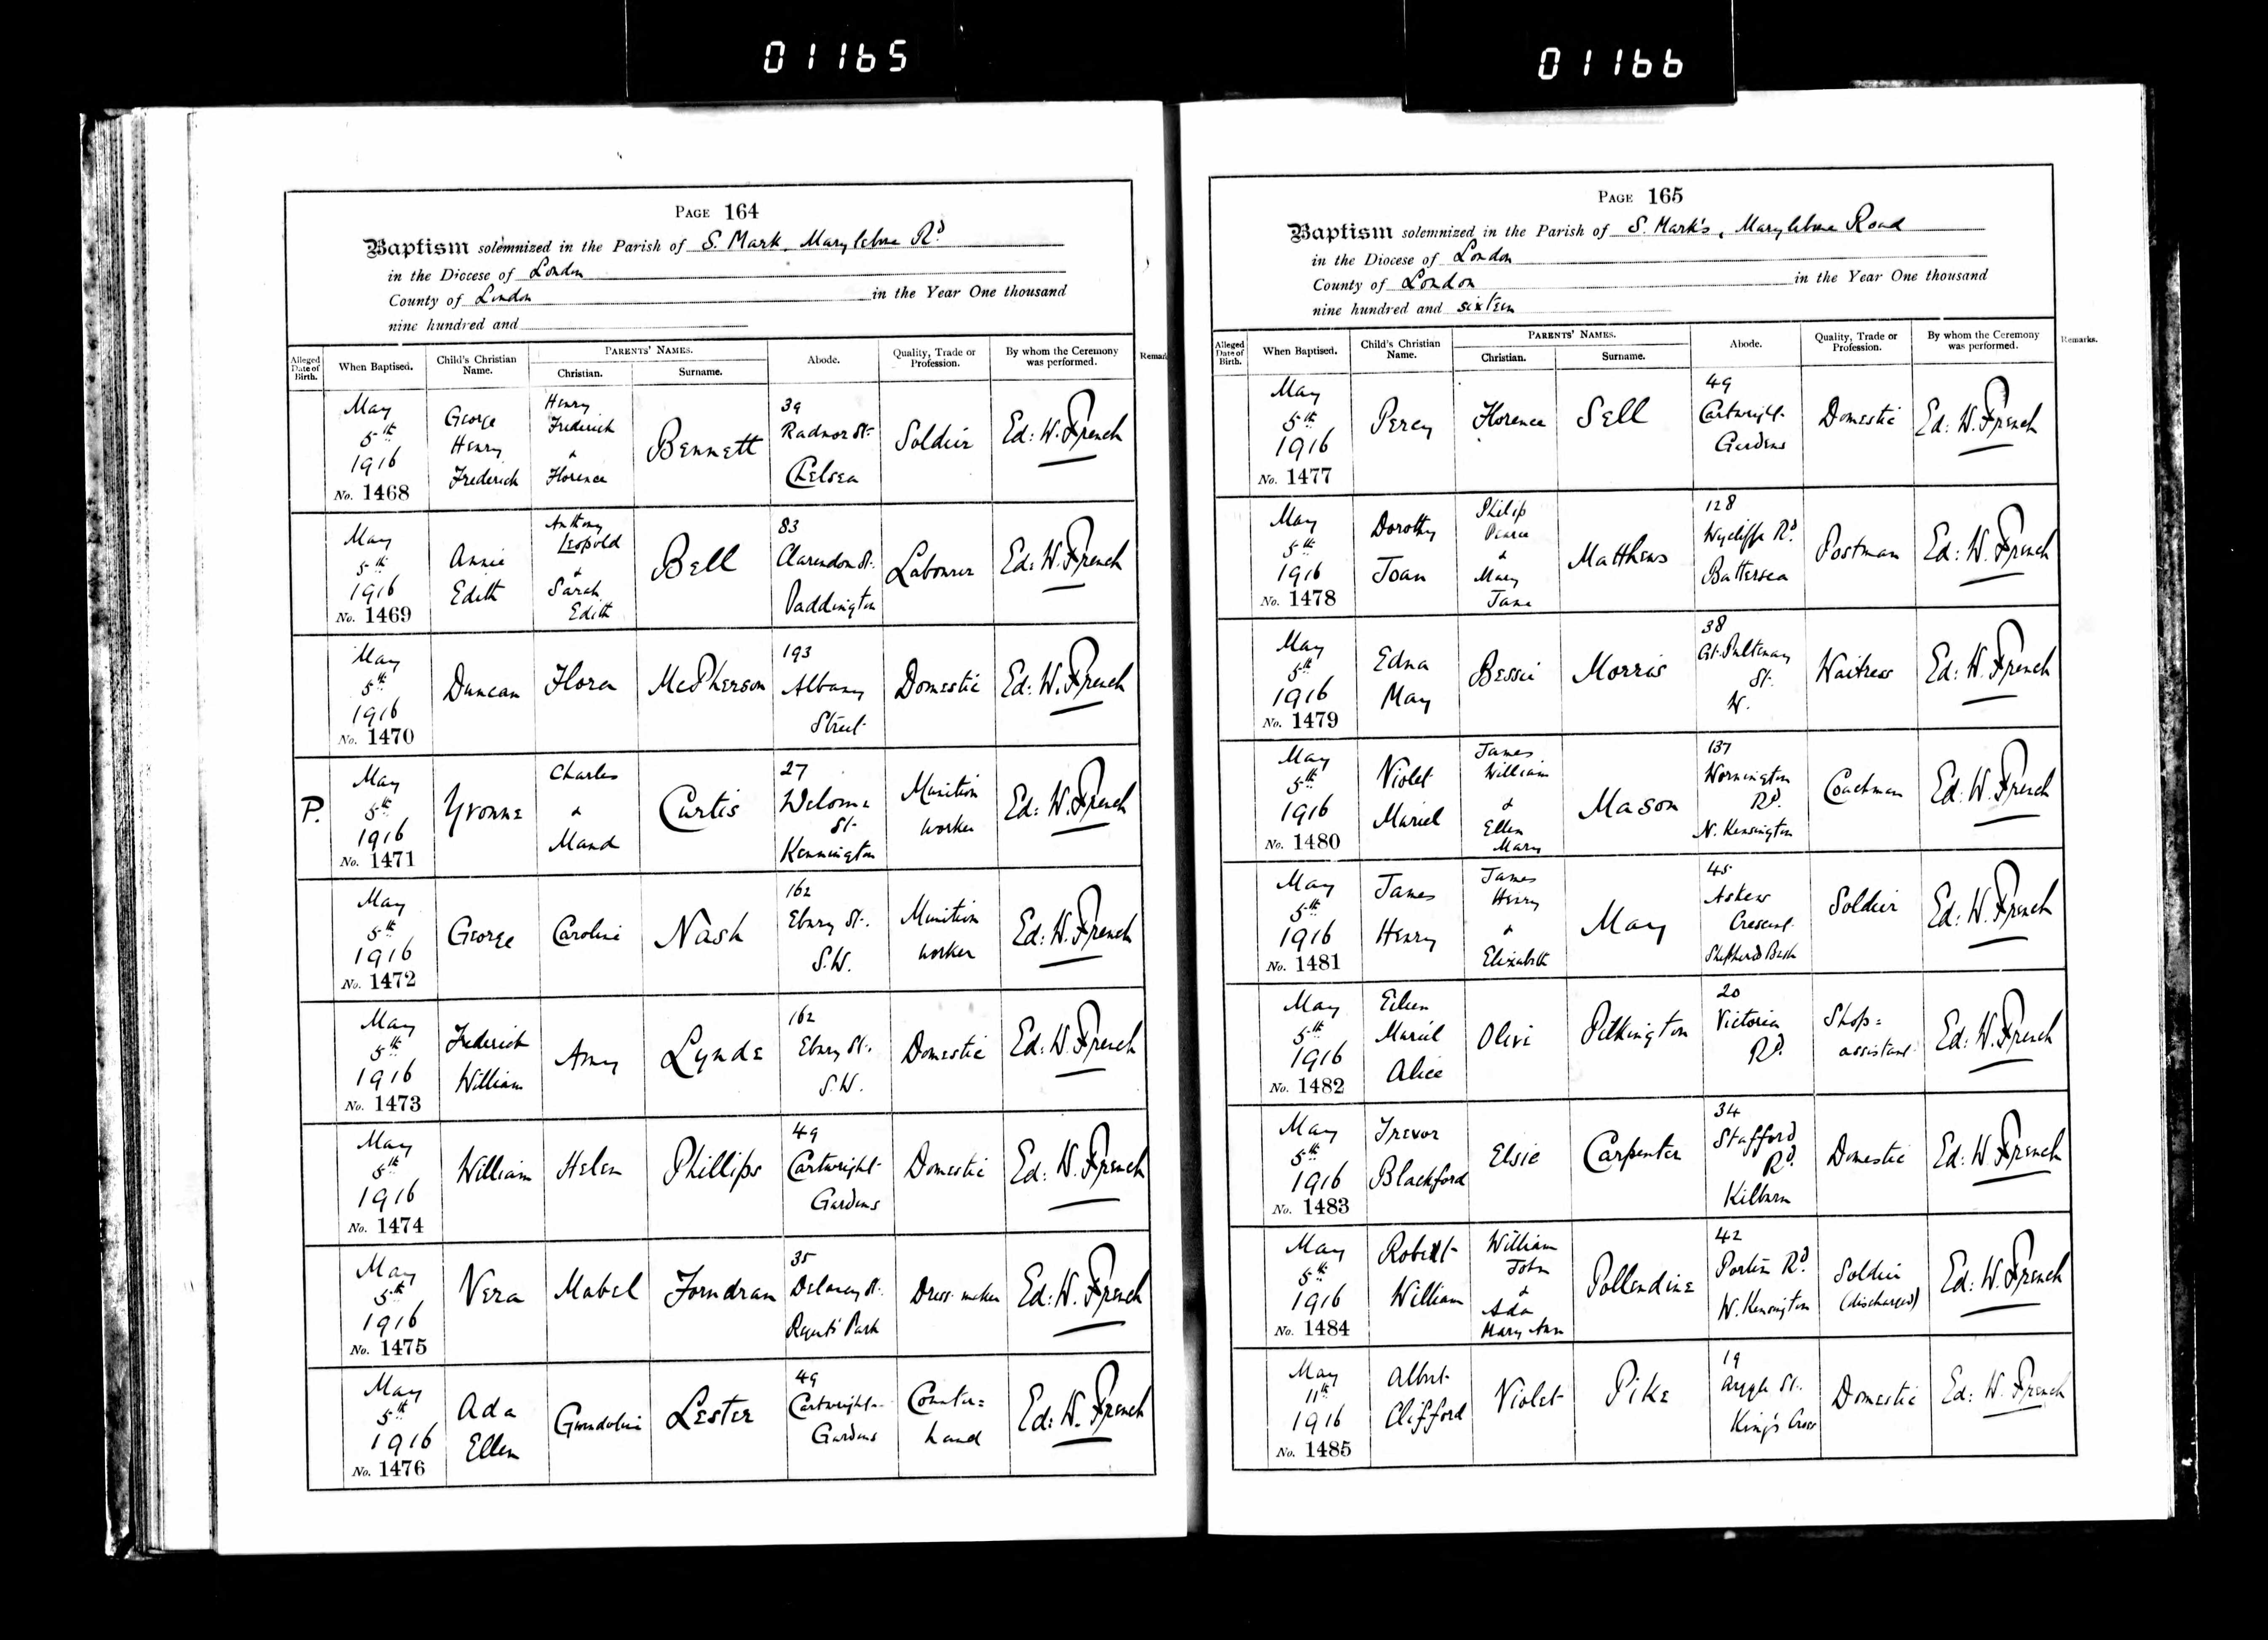 01165
01166
PAGE 164
Baptism solemnized in the Parish of S. Mark, Marylebone Rd
in the Diocese of London
County of London in the Year One thousand
nine hundred and
Alleged Date of Birth. When Baptised. Child's Christian Name. PARENTS' NAMES. Christian. Surname. Abode. Quality, Trade or Profession. By whom the Ceremony was performed. Remar
May 5th 1916 No. 1468 George Henry Frederick Henry Frederick & Florence Bennett 39 Radnor St. Chelsea Soldier Ed: W. French
May 5th 1916 No. 1469 Annie Edith Anthony Leopold & Sarah Edith Bell 83 Clarendon St. Paddington Labourer Ed: W. French
May 5th 1916 No. 1470 Duncan Flora McPherson 193 Albany Street Domestic Ed: W. French
P. May 5th 1916 No. 1471 Yvonne Charles & Maud Curtis 27 St. Kennington Munition worker Ed: W. French
May 5th 1916 No. 1472 George Caroline Nash 162 Ebury St. S.W. Munition worker Ed: W. French
May 5th 1916 No. 1473 Frederick William Amy Lynde 162 Ebury St. S.W. Domestic Ed: W. French
May 5th 1916 No. 1474 William Helen Phillips 49 Cartwright Gardens Domestic Ed: W. French
May 5th 1916 No. 1475 Vera Mabel Forndran 35 Delancey St. Regents Park Dress-maker Ed: W. French
May 5th 1916 No. 1476 Ada Ellen Gwendoline Lester 49 Cartwright Gardens Counter= hand Ed: W. French
PAGE 165
Baptism solemnized in the Parish of S. Mark's, Marylebone Road
in the Diocese of London
County of London in the Year One thousand
nine hundred and sixteen
Alleged Date of Birth. When Baptised. Child's Christian Name. PARENTS' NAMES. Christian. Surname. Abode. Quality, Trade or Profession. By whom the Ceremony was performed. Remarks.
May 5th 1916 No. 1477 Percy Florence Sell 49 Cartwright Gardens Domestic Ed: W. French
May 5th 1916 No. 1478 Dorothy Joan Philip Pearce & Mary Jane Matthews 128 Wycliffe Rd. Battersea Postman Ed: W. French
May 5th 1916 No. 1479 Edna May Bessie Morris 38 Gt. Pulteney St. W. Waitress Ed: W. French
May 5th 1916 No. 1480 Violet Muriel James William & Ellen Mary Mason 137 Wornington Rd. N. Kensington Coachman Ed: W. French
May 5th 1916 No. 1481 James Henry James Henry & Elizabeth May 45 Askew Crescent Shepherds Bush Soldier Ed: W. French
May 5th 1916 No. 1482 Eileen Muriel Alice Olive Pilkington 20 Victoria Rd. Shop= assistant Ed: W. French
May 5th 1916 No. 1483 Trevor Blackford Elsie Carpenter 34 Stafford Rd. Kilburn Domestic Ed: W. French
May 5th 1916 No. 1484 Robert William William John & Ada Mary Ann Pollendine 42 Porten Rd. W. Kensington Soldier (discharged) Ed: W. French
May 11th 1916 No. 1485 Albert Clifford Violet Pike 19 Argyle St. King's Cross Domestic Ed: W. French